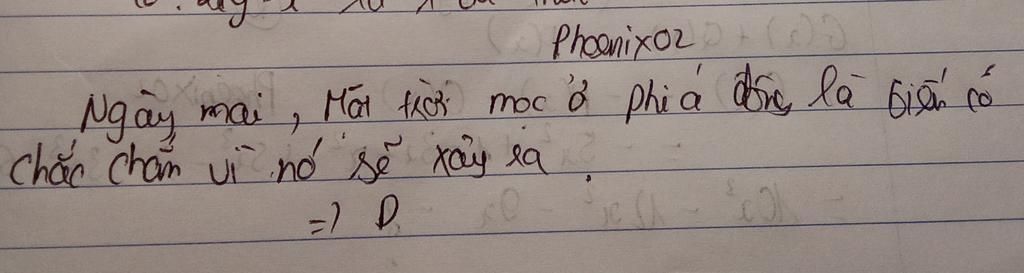 Phoenix02
Ngày mai, Mặt trời mọc ở phía đông là biến cố
chắc chắn vì nó sẽ xảy ra.
=) D.